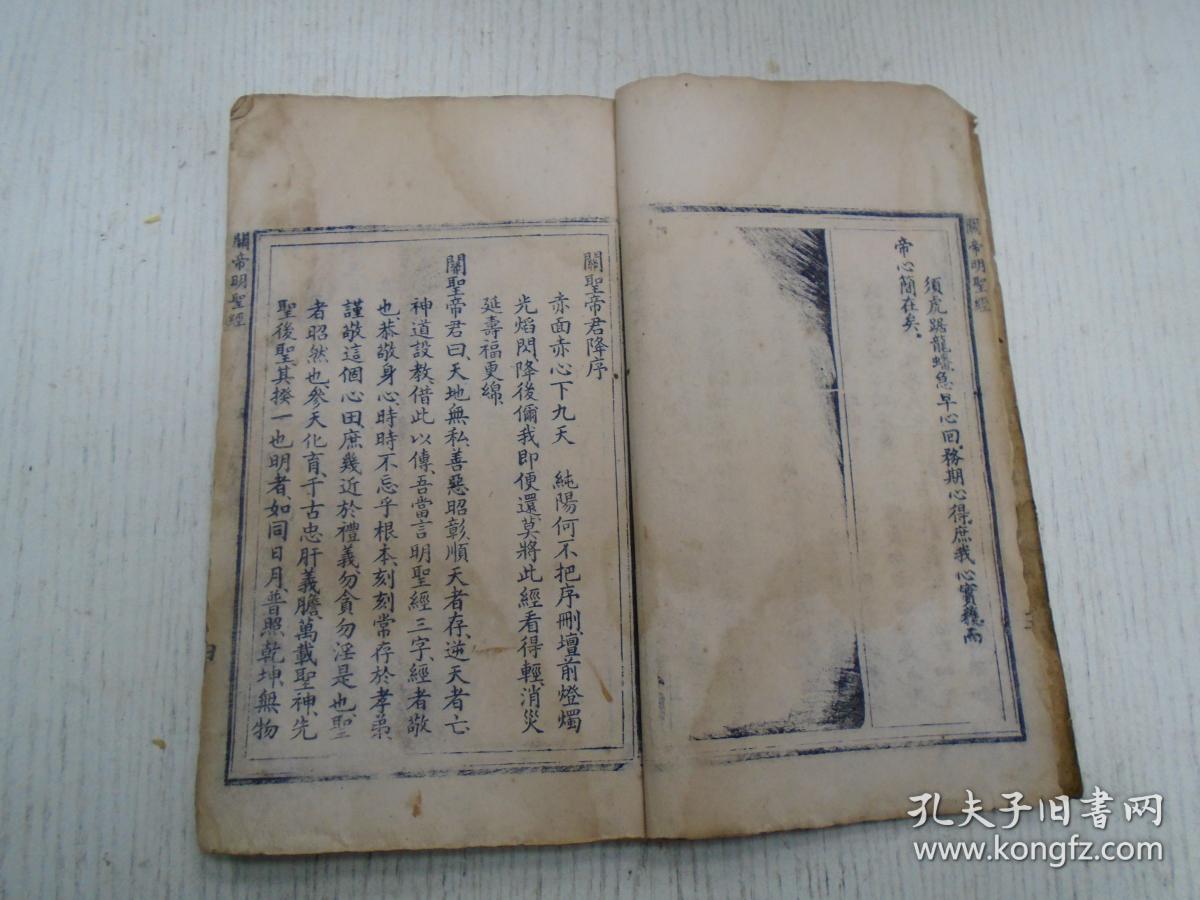 關帝明聖經
須虎踞龍蟠急早心回、務期心得、庶我心實穩而
帝心簡在矣。
關聖帝君降序
赤面赤心下九天 純陽何不把序刪、壇前燈燭
光焰閃、降後儞我即便還、莫將此經看得輕、消災
延壽福更綿、
關聖帝君曰、天地無私、善惡昭彰、順天者存、逆天者亡、
神道設教、借此以傳、吾當言明聖經三字、經者敬
也、恭敬身心、時時不忘乎根本、刻刻常存於孝弟、
謹敬這個心田、庶幾近於禮義、勿貪勿淫是也、聖
者昭然也、參天化育、千古忠肝義膽、萬載聖神、先
聖後聖、其揆一也、明者、如同日月、普照乾坤、無物
關帝明聖經
四
孔夫子旧書网
www.kongfz.com